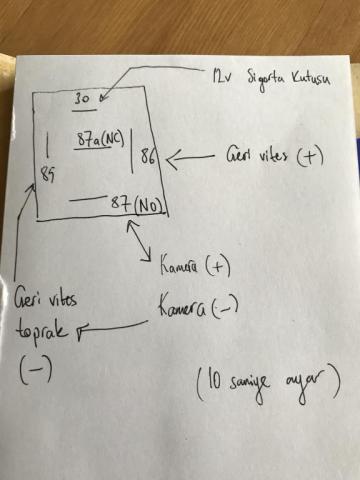 12v Sigorta Kutusu
30
87a(NC)
86
85
Geri vites (+)
87(NO)
Kamera (+)
Geri vites
toprak
(-)
Kamera (-)
(10 saniye ayar)